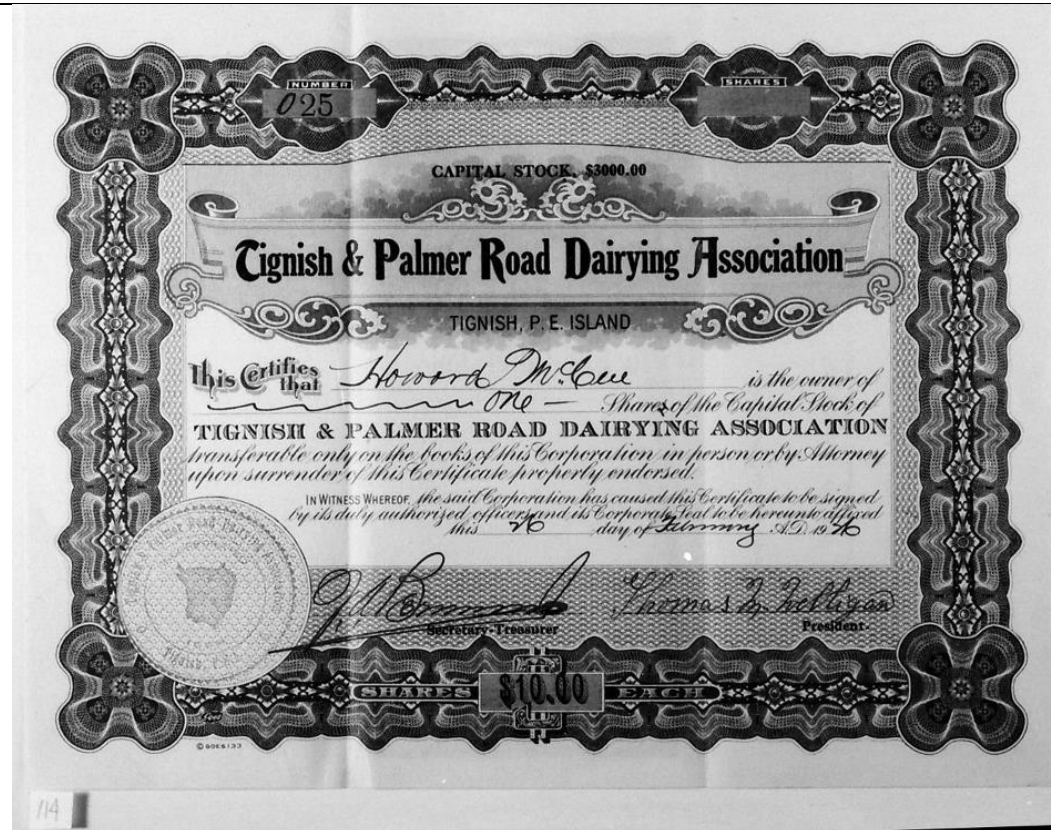 NUMBER
025
SHARES
CAPITAL STOCK, $3000.00
Tignish & Palmer Road Dairying Association
TIGNISH, P. E. ISLAND
This Certifies that Howard McCue is the owner of
one — Shares of the Capital Stock of
TIGNISH & PALMER ROAD DAIRYING ASSOCIATION
transferable only on the books of this Corporation in person or by Attorney
upon surrender of this Certificate properly endorsed.
IN WITNESS WHEREOF, the said Corporation has caused this Certificate to be signed
by its duly authorized officers and its Corporate Seal to be hereunto affixed
this 26 day of February A.D. 19
Thomas
Secretary-Treasurer
President.
SHARES $10.00 EACH
© GOES 133
114